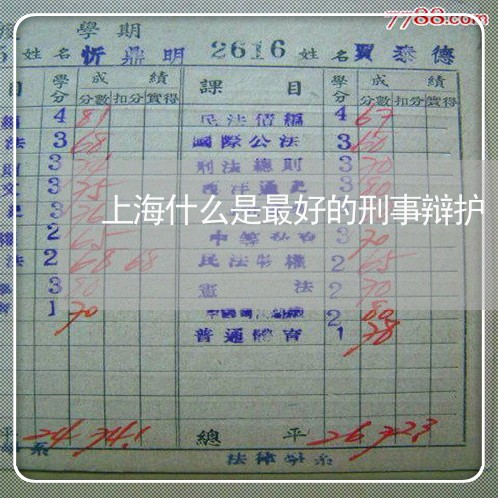 7788.com
度 學期
5 姓名 忻鼎明 2616 姓名 賈泰德
目 學分 成績 課目 學分 成績
分數 扣分 實得 分數 扣分 實得
4 81 民法債編 4 67
法 3 68 國際公法 3 60
3 刑法總則 3 70
文 3 75 西洋通史 3 80
上海什么是最好的刑事辩护
權 2 65 3 70
法 2 68 68 民法物權 2 65
3 80 憲法 2 70
1 70 2 80
普通體育 1 78
平 24 74.1 總平 26 72.3
系 法律學系